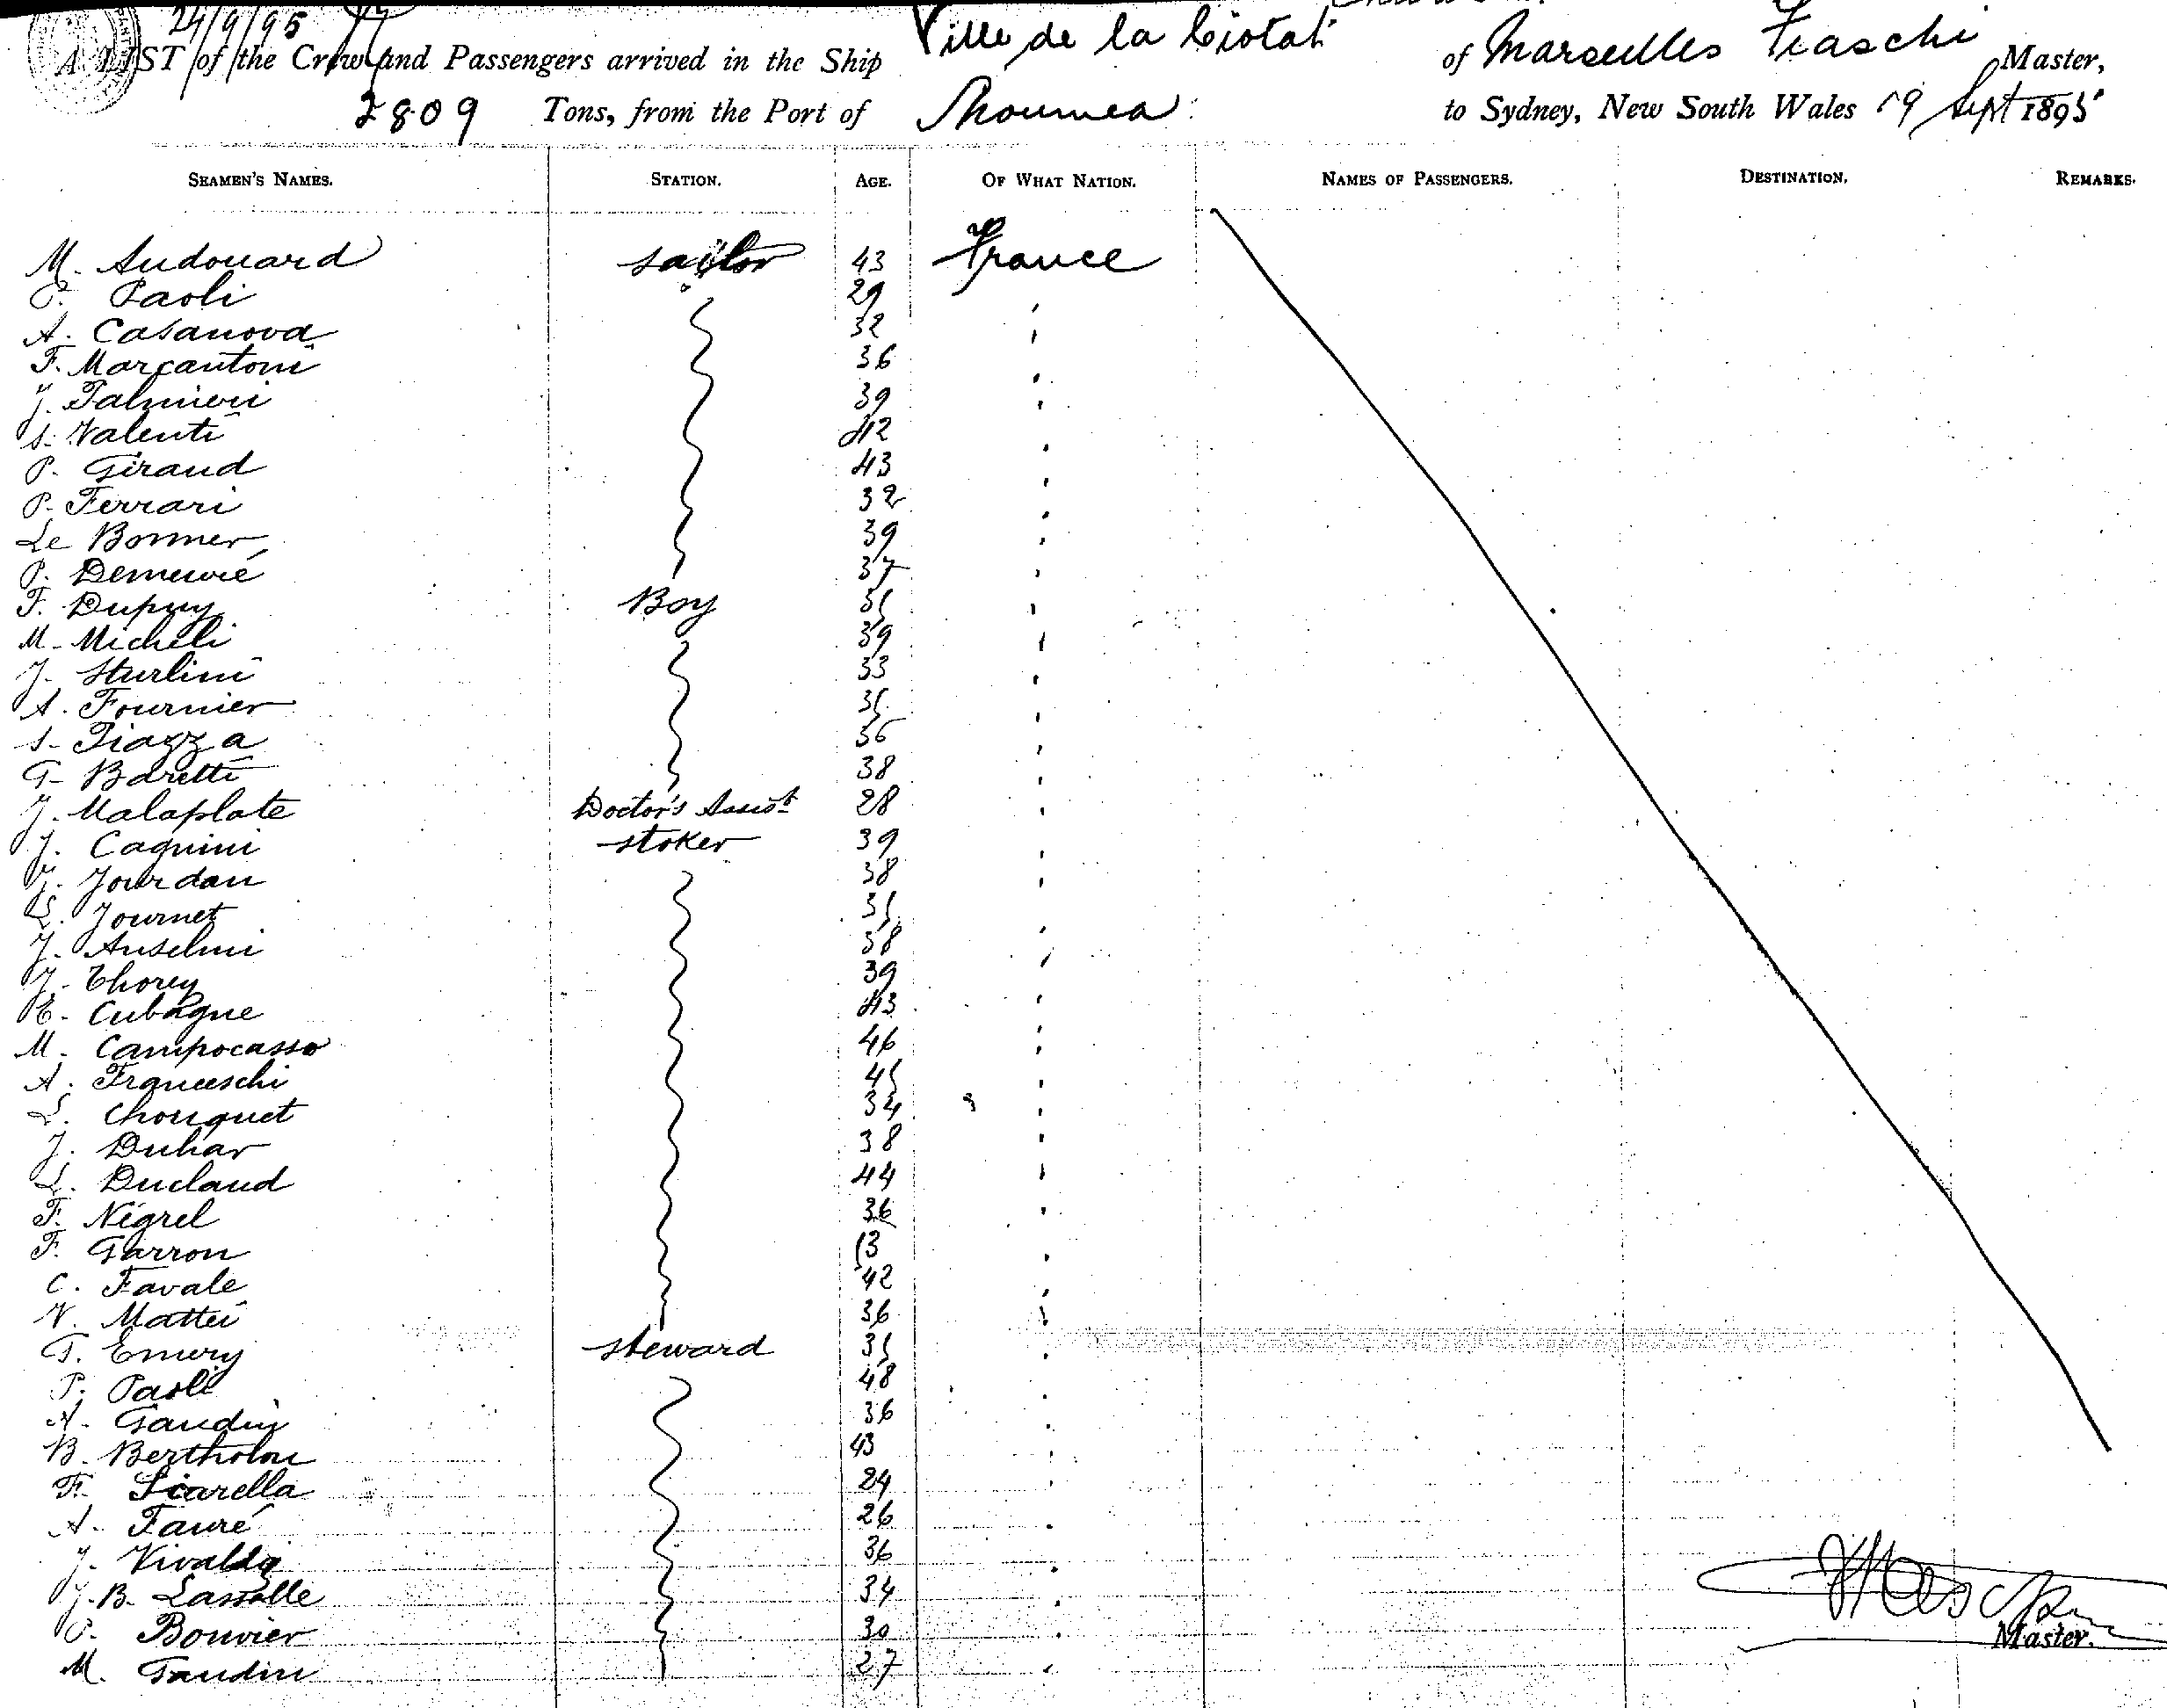 24/9/95
A LIST of the Crew and Passengers arrived in the Ship Ville de la Ciotat of Marseilles Fiaschi Master,
2809 Tons, from the Port of Noumea to Sydney, New South Wales 19 Sept 1895
SEAMEN'S NAMES. STATION. AGE. OF WHAT NATION. NAMES OF PASSENGERS. DESTINATION. REMARKS.
M. Audouard sailor 43 France
P. Paoli 29
A. Casanova 32
F. Marcantoni 36
J. Palmieri 39
S. Valenti 42
P. Giraud 43
P. Ferrari 32
Le Bonner 39
P. 37
F. Dupuy Boy 35
M. Micheli 39
J. Sturlini 33
A. Fournier 35
S. Piazza 36
G. Baretti 38
J. Malaplate Doctor's Assist 28
J. Cagnini stoker 39
J. Jourdan 38
L. Journet 35
J. Anselmi 38
J. Thorey 39
E. Cubagne 43
M. Campocasso 46
A. Franceschi 45
L. Chouquet 34
J. Duhar 38
L. Duclaud 44
F. Négrel 36
F. Garron
C. Favale 42
V. Mattei 36
T. Emery steward 35
P. Paoli 48
A. Gaudin 36
B. Bertholon 43
F. Sicarella 24
A. Fauré 26
J. Vivaldy 36
J.B. Lassalle 34
P. Bouvier 30
Master.
M. Gaudin 27